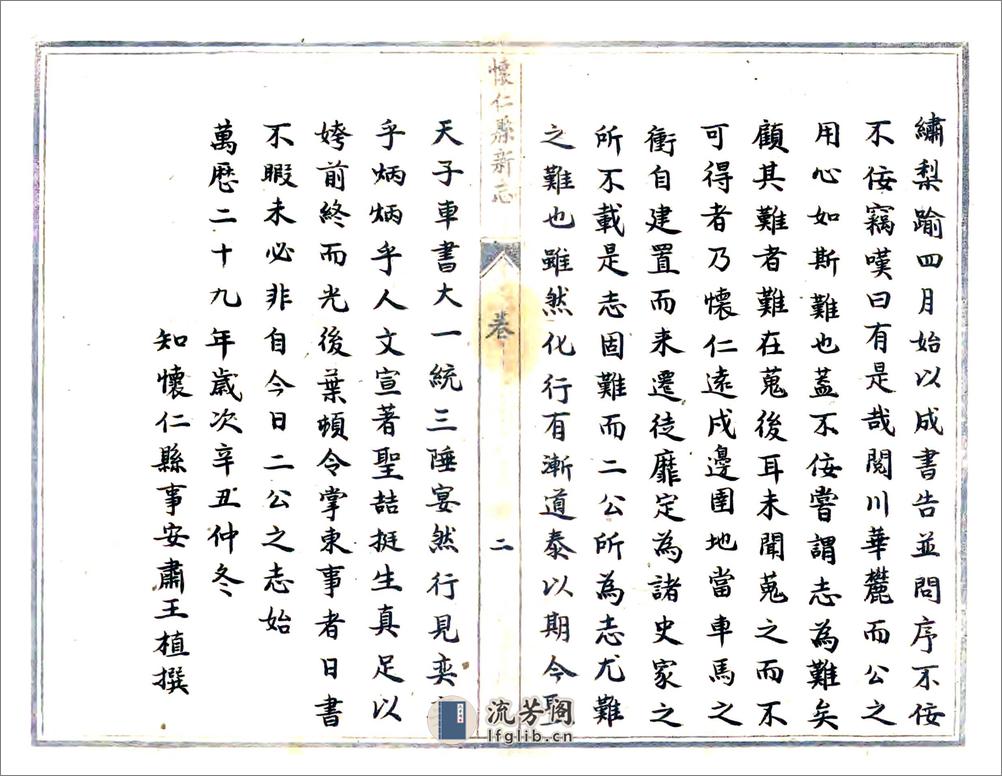 繡梨踰四月始以成書告並問序不佞
不佞竊嘆曰有是哉閱川華麓而公之
用心如斯難也蓋不佞嘗謂志為難矣
顧其難者難在蒐後耳未聞蒐之而不
可得者乃懷仁遠戍邊圉地當車馬之
衝自建置而来遷徒靡定為諸史家之
所不載是志固難而二公所為志尤難
之難也雖然化行有漸道泰以期今聖
懷仁縣新志
卷
二
天子車書大一統三陲宴然行見奕
乎炳炳乎人文宣著聖喆挺生真足以
姱前終而光後葉頓令掌東事者日書
不暇未必非自今日二公之志始
萬厯二十九年歲次辛丑仲冬
知懷仁縣事安肅王植撰
流芳阁
lfglib.cn